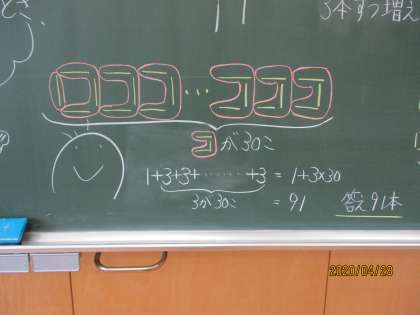 とき
3本ずつ増え
コが30こ
1+3+3+……+3 = 1+3×30
3が30こ
= 91
答え 91本
2020/04/28